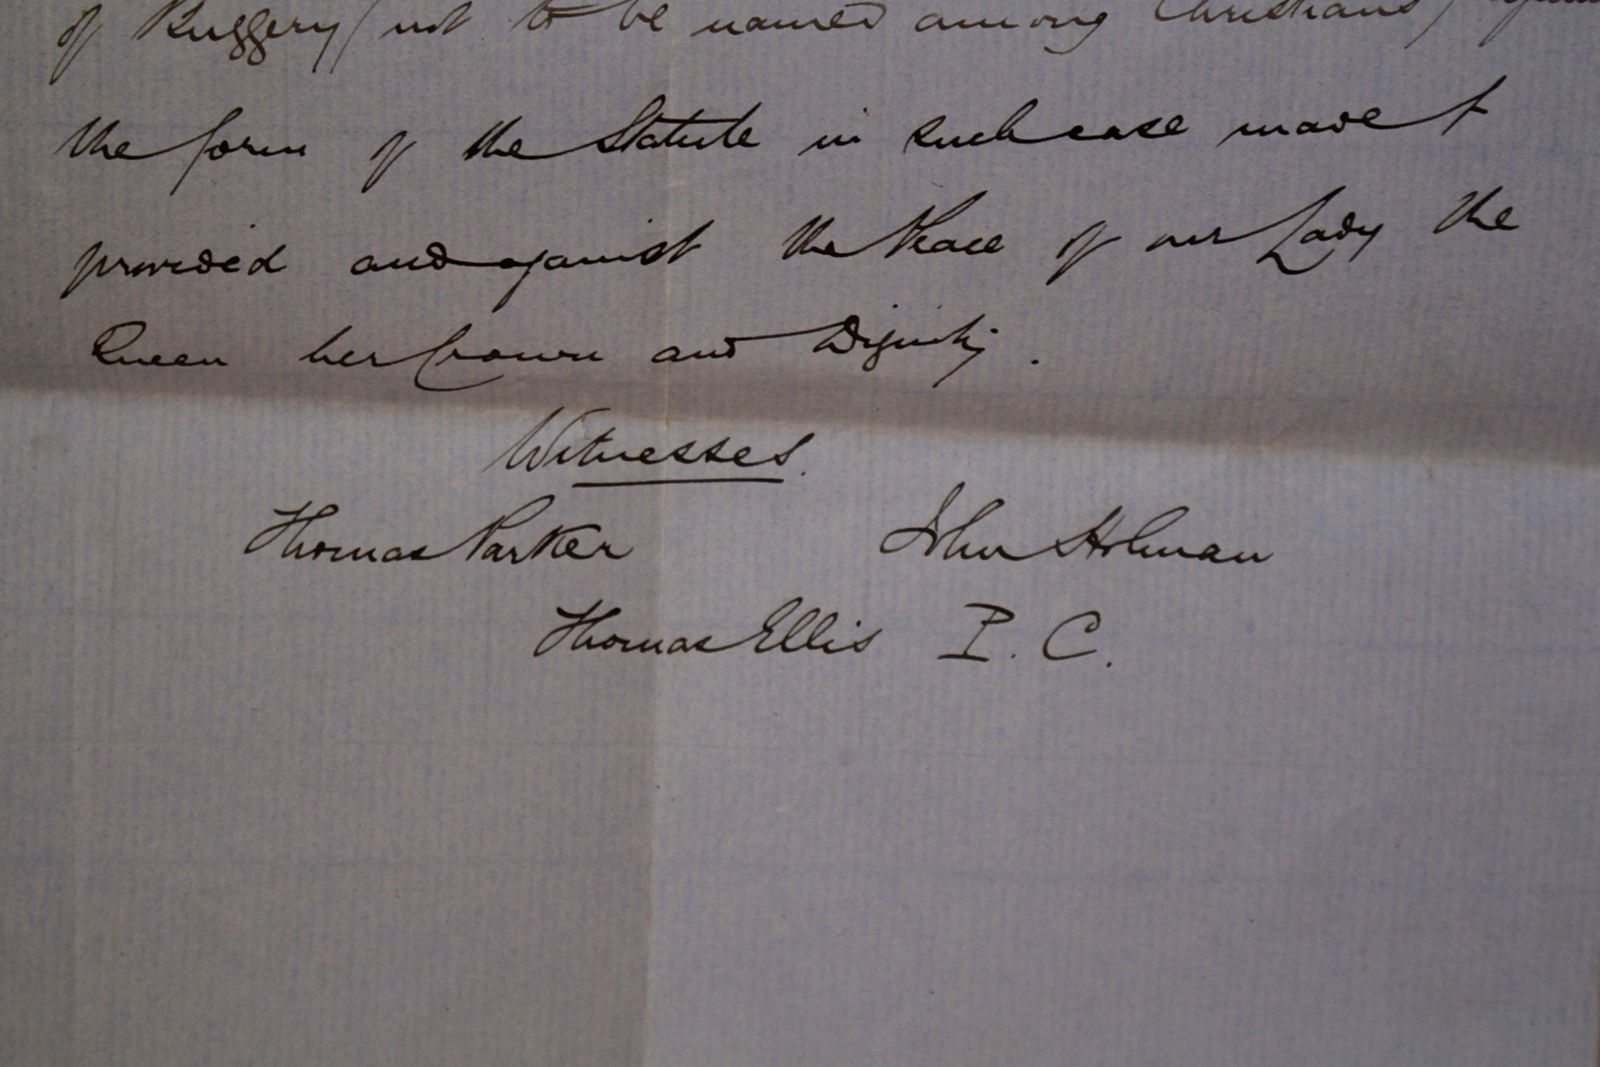 of Buggery (not to be named among Christians) against
the form of the Statute in such case made &
provided and against the Peace of our Lady the
Queen her Crown and Dignity.
Witnesses.
Thomas Parker John Holman
Thomas Ellis P. C.